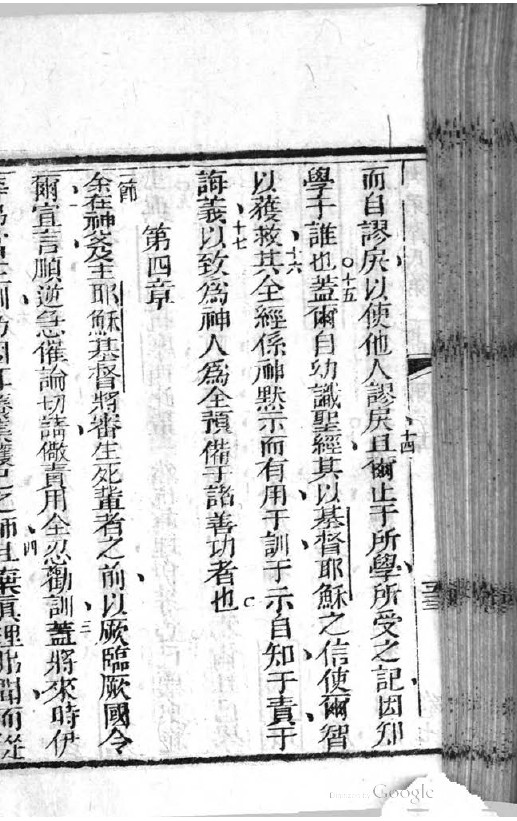 而自謬戾以使他人謬戾且爾止于所學所受之記因知
學于誰也蓋爾自幼識聖經其以基督耶穌之信使爾智
以獲救其全經係神默示而有用于訓于示自知于責于
誨義以致為神人為全預備于諸善功者也
第四章
余在神及主耶穌基督將審生死輩者之前以厥臨厥國令
爾宣言順逆急催論切請儆責用全忍勸訓蓋將來時伊
Google